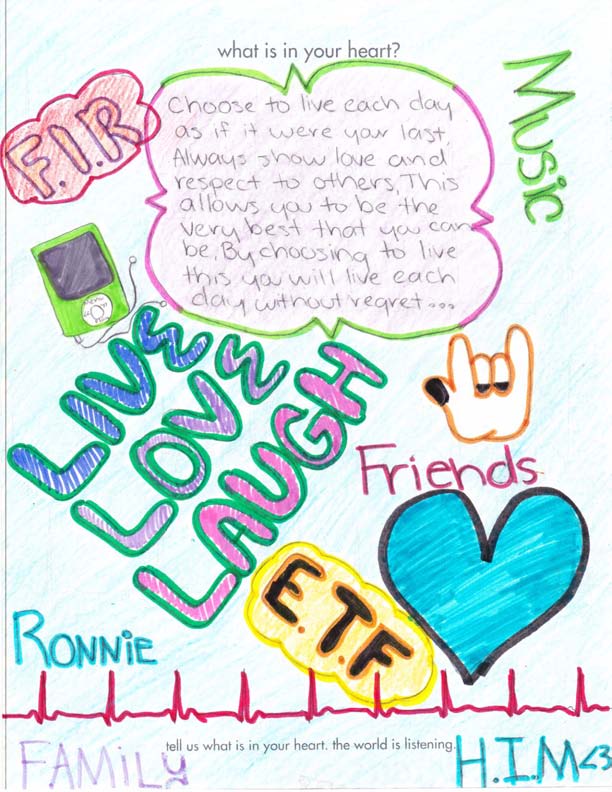 what is in your heart?
F.I.R
Music
Choose to live each day
as if it were your last.
Always show love and
respect to others, This
allows you to be the
very best that you can
be. By choosing to live
this you will live each
day without regret...
Menu
LIVE
LOVE
LAUGH
Friends
E.T.F
RONNiE
tell us what is in your heart. the world is listening.
FAMiLy
H.I.M<3